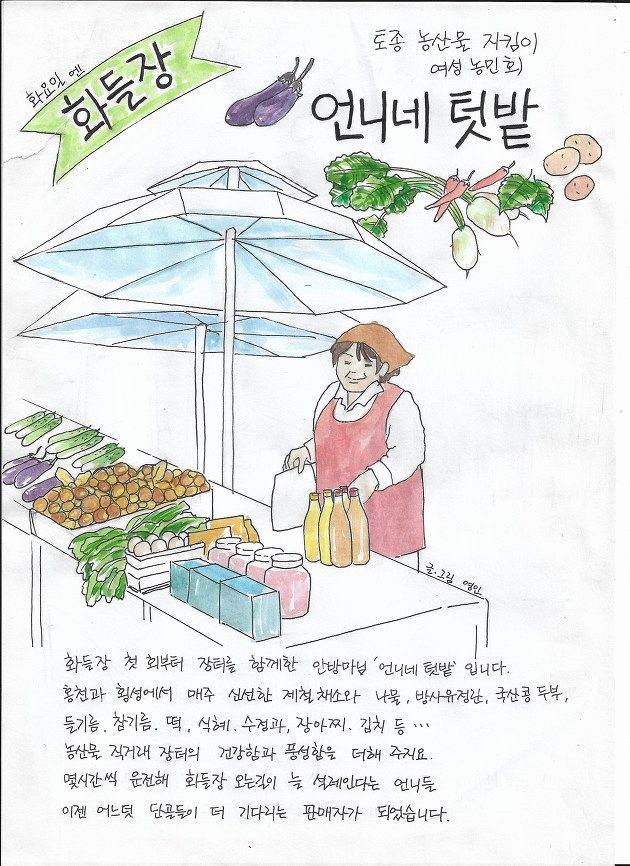 화요일엔
화들장
토종 농산물 지킴이
여성 농민회
언니네 텃밭
글.그림 영인
화들장 첫 회부터 장터를 함께한 안방마님 '언니네 텃밭' 입니다.
홍천과 횡성에서 매주 신선한 제철채소와 나물, 방사유정란, 국산콩 두부,
들기름, 참기름. 떡, 식혜. 수정과, 장아찌. 김치 등 …
농산물 직거래 장터의 건강함과 풍성함을 더해 주지요.
몇시간씩 운전해 화들장 오는길이 늘 설레인다는 언니들
이젠 어느덧 단골들이 더 기다리는 판매자가 되었습니다.